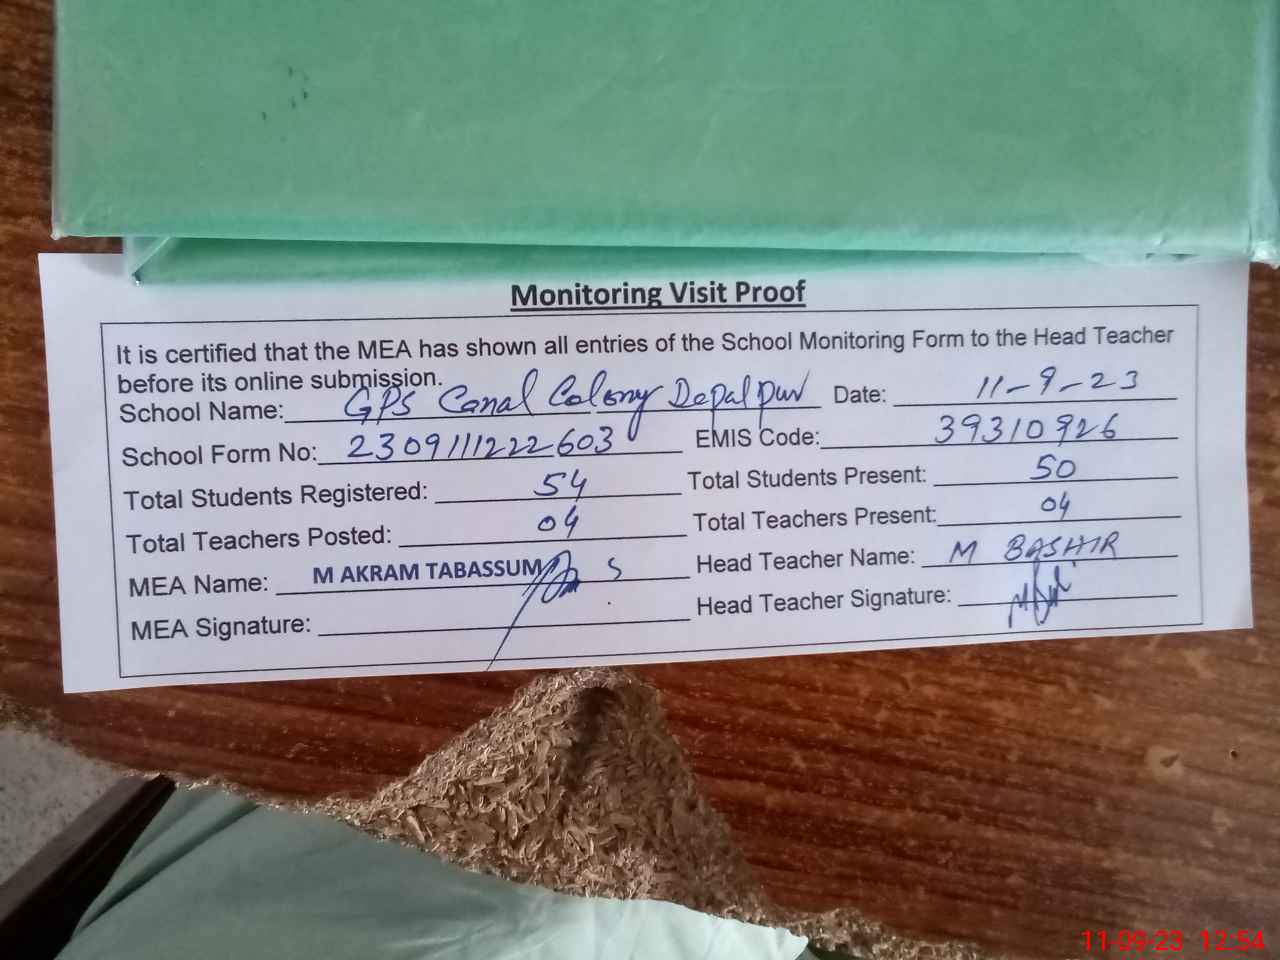 Monitoring Visit Proof
It is certified that the MEA has shown all entries of the School Monitoring Form to the Head Teacher
before its online submission.
School Name: GPS Canal Colony Depalpur Date: 11-9-23
School Form No: 2309111222603 EMIS Code: 39310926
Total Students Registered: 54 Total Students Present: 50
Total Teachers Posted: 04 Total Teachers Present: 04
MEA Name: M AKRAM TABASSUM Head Teacher Name: M BASHIR
MEA Signature: Head Teacher Signature:
11-09-23 12:54